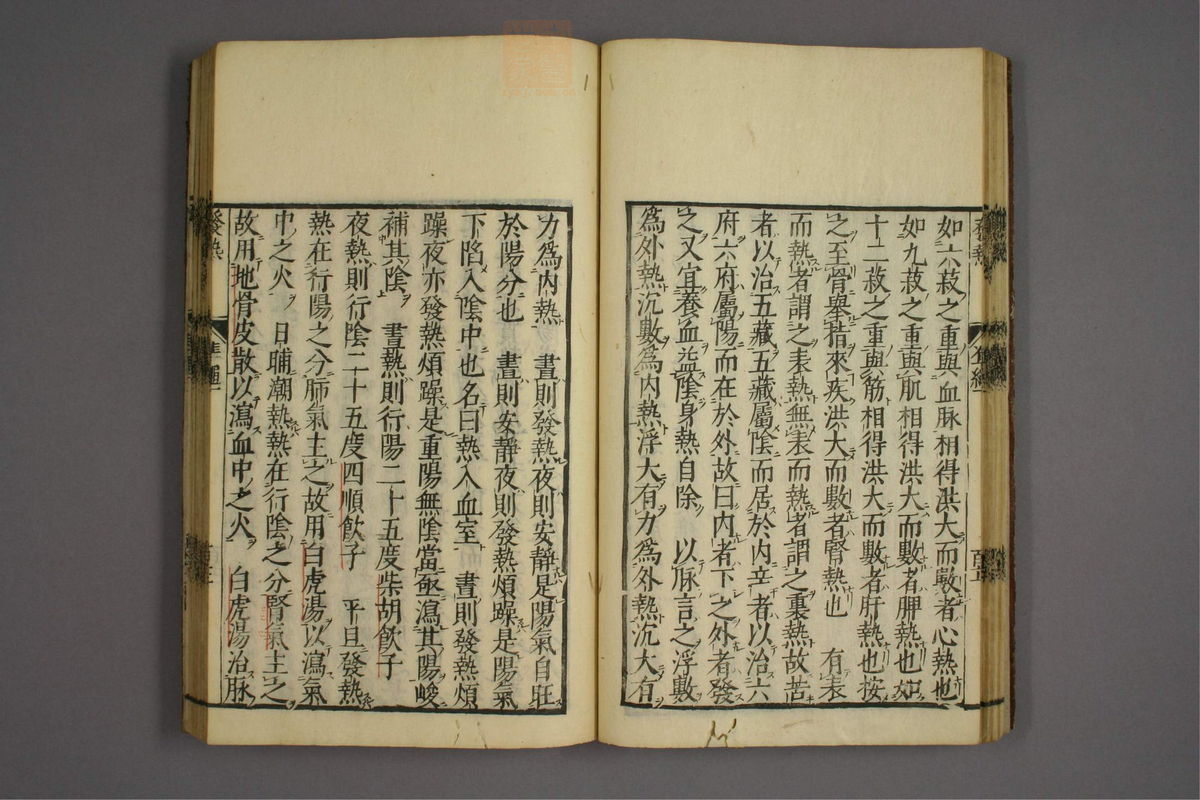 如六菽之重與血脉相得洪大而數者心熱也
如九菽之重與肌相得洪大而數者脾熱也如
十二菽之重與筋相得洪大而數者肝熱也按
之至骨舉指來疾洪大而數者腎熱也 有表
而熱者謂之表熱無表而熱者謂之裏熱故苦
者以治五藏五藏屬陰而居於內辛者以治六
府六府屬陽而在於外故曰內者下之外者發
之又宜養血益陰身熱自除 以脉言之浮數
為外熱沉數為內熱浮大有力為外熱沉大有
力為內熱 晝則發熱夜則安靜是陽氣自旺
於陽分也 晝則安靜夜則發熱煩躁是陽氣
下陷入陰中也名曰熱入血室 晝則發熱煩
躁夜亦發熱煩躁是重陽無陰當亟瀉其陽峻
補其陰 晝熱則行陽二十五度柴胡飲子
夜熱則行陰二十五度四順飲子 平旦發熱
熱在行陽之分肺氣主之故用白虎湯以瀉氣
中之火 日晡潮熱熱在行陰之分腎氣主之
故用地骨皮散以瀉血中之火 白虎湯治脉
發熱